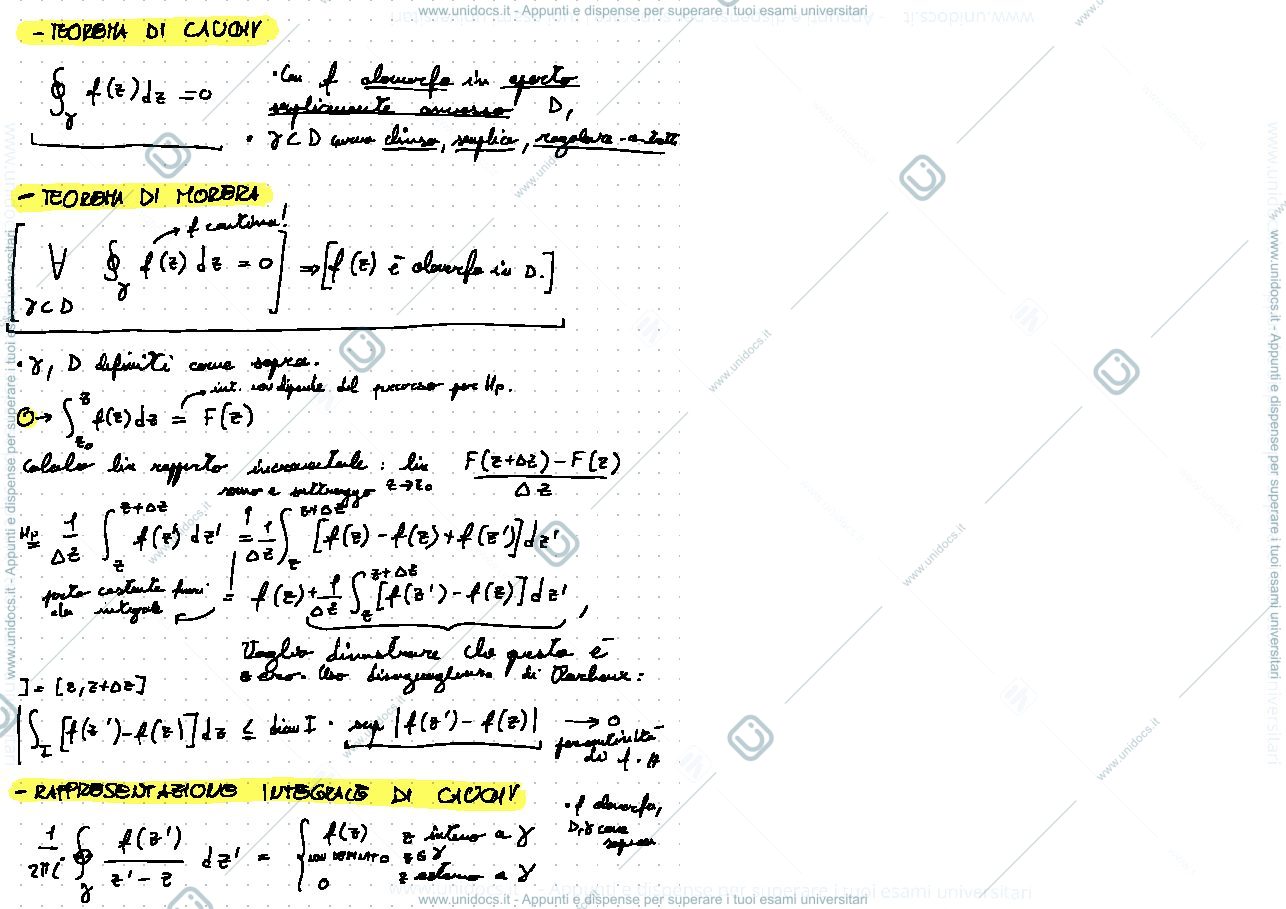 www.unidocs.it - Appunti e dispense per superare i tuoi esami universitari
- TEOREMA DI CAUCHY
∮_γ f(z) dz = 0
• Con f olomorfa in aperto
semplicemente connesso D,
• γ ⊂ D curva chiusa, semplice, regolare a tratti
- TEOREMA DI MORERA
→ f continua!
[∀ γ⊂D ∮_γ f(z) dz = 0] ⇒ [f(z) è olomorfa in D.]
• γ, D definiti come sopra.
→ int. non dipende dal percorso per Hp.
→ ∫_{z₀}^{z} f(z) dz = F(z)
Calcolo lim rapporto incrementale : lim_{z→z₀} (F(z+Δz) - F(z))/Δz
sommo e sottraggo
Hp = 1/Δz ∫_z^{z+Δz} f(z') dz' = 1/Δz ∫_z^{z+Δz} [f(z) - f(z) + f(z')] dz'
porto costante fuori
= f(z) + 1/Δz ∫_z^{z+Δz} [f(z') - f(z)] dz' ,
integrale
Voglio dimostrare che questo è
zero. Uso disuguaglianza di Darboux :
I = [z, z+Δz]
|∫_I [f(z') - f(z)] dz ≤ diam I · sup |f(z') - f(z)| → 0
per continuità
di f.
- RAPPRESENTAZIONE INTEGRALE DI CAUCHY
• f olomorfa,
D, γ come
sopra
1/2πi ∮_γ f(z')/(z' - z) dz' = { f(z) z interno a γ
NON DEFINITO z ∈ γ
0 z esterno a γ
www.unidocs.it - Appunti e dispense per superare i tuoi esami universitari